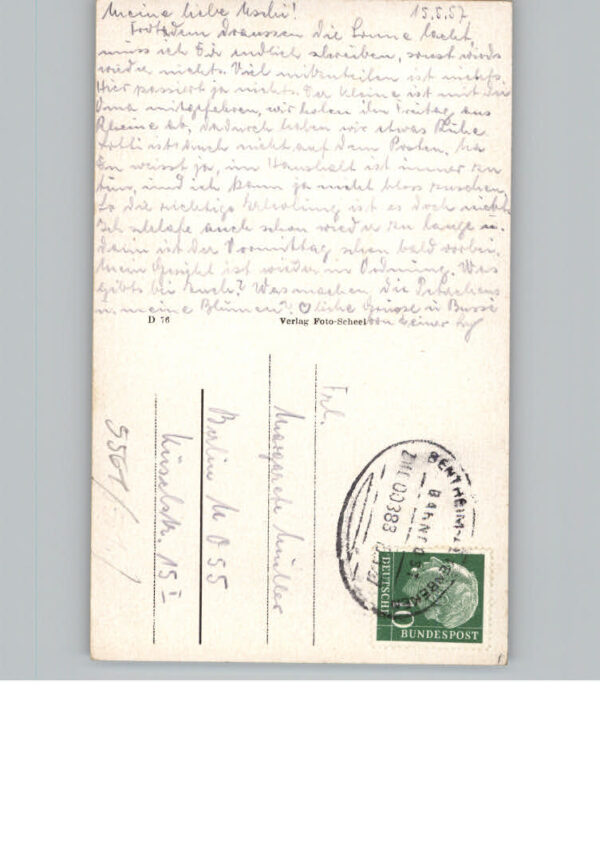 Meine liebe Uschi! 15.5.57
Trotzdem draussen die Sonne lacht,
muss ich Dir endlich schreiben, sonst wirds
wieder nichts. Viel mitzuteilen ist nichts.
Hier passiert ja nichts. Der Kleine ist mit der
Oma mitgefahren, wir holen ihn Freitag aus
Rheine ab, dadurch haben wir etwas Ruhe
ist auch nicht auf dem Posten. Na
Du weisst ja, im Haushalt ist immer zu
tun, und ich kann ja nicht bloss zuschauen.
So die richtige Erholung ist es doch nicht.
Ich schlafe auch schon wieder so lange u.
dann ist der Vormittag schon bald vorbei.
Mein Gesicht ist wieder in Ordnung. Was
gibts bei Euch? Was machen die
u. meine Blumen? liche Grüsse u. Bussi
von Deiner
D 76 Verlag Foto-Scheel
Frl.
Margarete Müller
Berlin N O 55
15 I
5561
BENTHEIM-
BAHNPOST
ZUG 00383
DEUTSCHE
BUNDESPOST
10